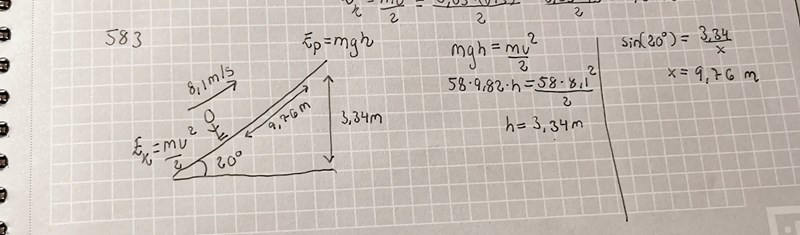 583
Eₚ=mgh
8,1m/s
9,76 m
3,34m
Eₖ=mv²/2
20°
mgh=mv²/2
58·9,82·h=58·8,1²/2
h=3,34m
sin(20°)=3,34/x
x=9,76 m